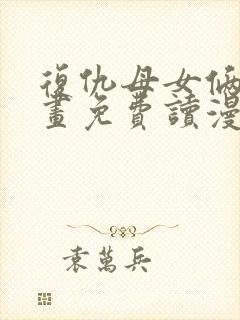 復仇母女倆
畫免費讀漫
袁萬兵